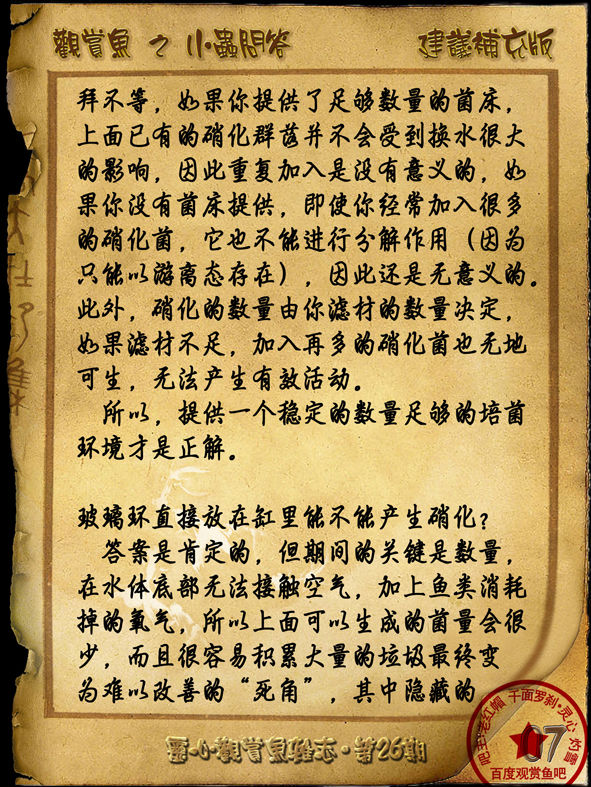 觀賞魚 之 小蟲問答
建議補充版
拜不等，如果你提供了足够数量的菌床，
上面已有的硝化群落并不会受到换水很大
的影响，因此重复加入是没有意义的，如
果你没有菌床提供，即使你经常加入很多
的硝化菌，它也不能进行分解作用（因为
只能以游离态存在），因此还是无意义的。
此外，硝化的数量由你滤材的数量决定，
如果滤材不足，加入再多的硝化菌也无地
可生，无法产生有效活动。
所以，提供一个稳定的数量足够的培菌
环境才是正解。
玻璃环直接放在缸里能不能产生硝化？
答案是肯定的，但期间的关键是数量，
在水体底部无法接触空气，加上鱼类消耗
掉的氧气，所以上面可以生成的菌量会很
少，而且很容易积累大量的垃圾最终变
为难以改善的“死角”，其中隐藏的
靈·心觀賞魚雜志·第26期
吧主:老红帽 千面罗刹·灵心 灼雪
07
百度观赏鱼吧